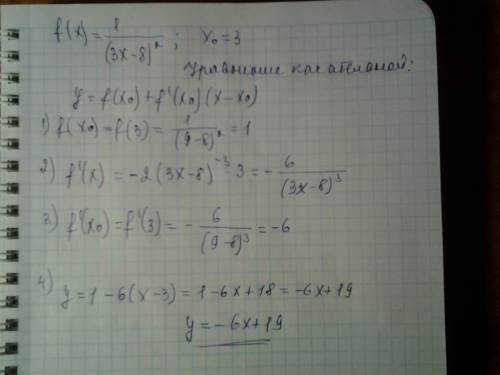 f(x) = 1/(3x-8)²; x₀ = 3
Уравнение касательной:
y = f(x₀) + f'(x₀)(x-x₀)
1) f(x₀) = f(3) = 1/(9-8)² = 1
2) f'(x) = -2(3x-8)⁻³·3 = -6/(3x-8)³
3) f'(x₀) = f'(3) = -6/(9-8)³ = -6
4) y = 1-6(x-3) = 1-6x+18 = -6x+19
y = -6x+19